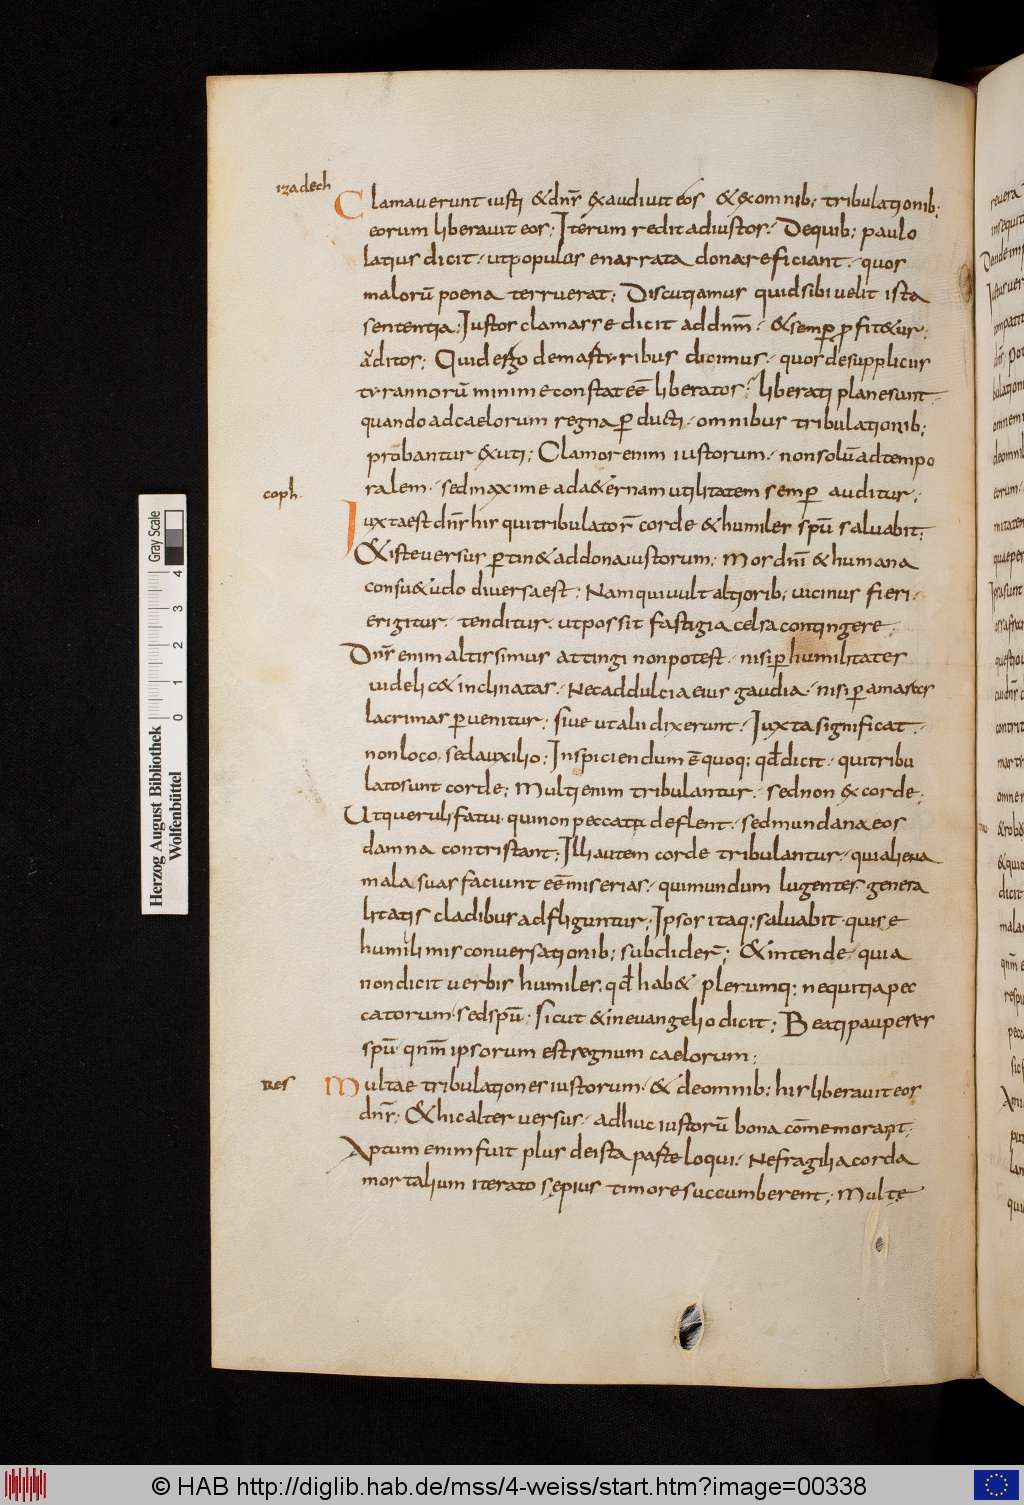 izadech
Clamaverunt iusti & dn̄s exaudivit eos & ex omnib; tribulationib;
eorum liberavit eos; Iterum redit ad iustos. De quib; paulo
latius dicit. ut populos enarrata dona reficiant. quos
malorū poena terruerat; Discutiamus quid sibi velit ista
sententia; Iustos clamasse dicit ad dnm̄. & semp̄ profit&ur
auditos; Quid ergo de martyribus dicimus. quos de suppliciis
tyrannorū minime constat eē liberatos; liberati plane sunt.
quando ad caelorum regna p̄ducti. omnibus tribulationib;
probantur exuti; Clamor enim iustorum. non solū ad tempo
coph.
ralem. sed maxime ad a&ernam utilitatem semp̄ auditur;
Iuxta est dn̄s his qui tribulato s̄ corde & humiles spū salvabit;
& iste versus p̄tin& ad dona iustorum; Mos dnī & humana
consu&udo diversa est; Nam qui vult altiorib; vicinus fieri.
erigitur. tenditur. ut possit fastigia celsa contingere.
Dn̄s enim altissimus attingi non potest. nisi p̄ humilitates
videlic& inclinatas. Nec ad dulcia eius gaudia. nisi p̄ amaras
lacrimas p̄venitur; sive ut alii dixerunt. Iuxta significat.
non loco. sed auxilio; Inspiciendum ē quoq; qđ dicit. qui tribu
lato sunt corde; Multi enim tribulantur. sed non ex corde.
Ut queruli fatui. qui non peccata deflent. sed mundana eos
damna contristant; Illi autem corde tribulantur. qui aliena
mala suas faciunt eē miserias. qui mundum lugentes genera
litatis cladibus adfliguntur; Ipsos itaq; salvabit. qui se
humillimis conversationib; subdider̄; & intende. quia
non dicit verbis humiles. qđ hab& plerumq; nequitia pec
catorum. sed spū. sicut & in evangelio dicit; Beati pauperes
spū. qnm̄ ipsorum est regnum caelorum;
Res
Multae tribulationes iustorum. & de omnib; his liberavit eos
dn̄s. & hic alter versus. adhuc iustorū bona com̄emorant;
Aptum enim fuit plus de ista parte loqui. Ne fragilia corda
mortalium iterato sępius timore succumberent; Multę
Herzog August Bibliothek
Wolfenbüttel
0 1 2 3 4
Gray Scale
© HAB http://diglib.hab.de/mss/4-weiss/start.htm?image=00338